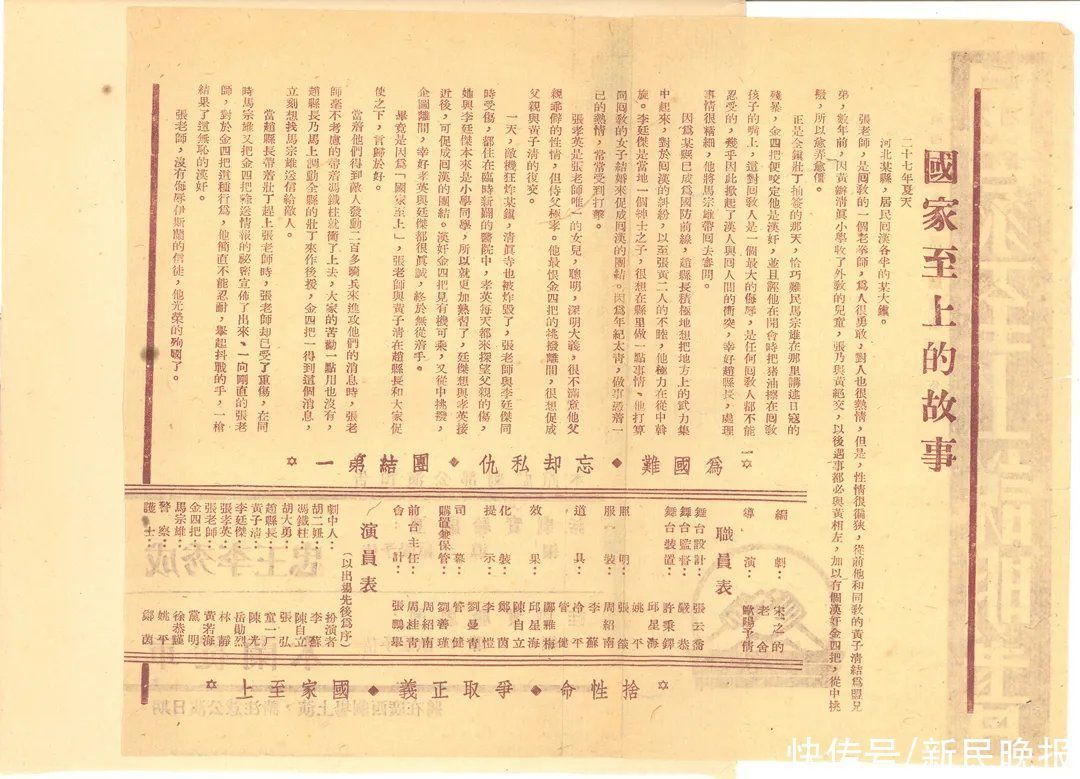 國家至上的故事
二十七年夏天
河北某縣,居民回漢各半的某大鎮。
張老師,是回教的一個老拳師,為人很勇敢,對人也很熱情,但是,性情很偏狹,從前他和同教的黃子清結為盟兄
弟,數年前,因黃辦清真小學收了外教的兒童,張乃與黃絕交,以後遇事都必與黃相左,加以有個漢奸金四把,從中挑
撥,所以愈弄愈僵。
正是全鎮壯丁抽簽的那天,恰巧難民馬宗雄在那里講述日寇的
殘暴,金四把便咬定他是漢奸,並且誣他在開會時把猪油擦在回敎
孩子的嘴上,這對回敎人是一個最大的侮辱,是任何回敎人都不能
忍受的,幾乎因此掀起了漢人與回人間的衝突,幸好趙縣長,處理
事情很精細,他將馬宗雄帶回去審問。
因為某縣已成為國防前線,趙縣長積極地想把地方上的武力集
中起來,對於回漢的糾紛,以至張黃二人的不睦,他極力在從中斡
旋。李廷傑是當地一個紳士之子,很想在縣里做一點事情,他打算
同回教的女子結婚來促成回漢的團結。因為年紀太靑,做事憑着一
己的熱情,常常受到打擊。
張孝英是張老師唯一的女兒,聰明,深明大義,很不滿意他父
親乖僻的性情,但侍父極孝。他最恨金四把的挑撥離間,很想促成
父親與黃子清的復交。
一天,敵機狂炸某鎮,清眞寺也被炸毀了,張老師與李廷傑同
時受傷,都住在臨時新闢的醫院中,孝英每天都來探望父親的傷,
她與李廷傑本來是小學同學,所以就更加熟習了,廷傑想與孝英接
近後,可促成回漢的團結。漢奸金四把見有機可乘,又從中挑撥,
企圖離間,幸好孝英與廷傑都很眞誠,終於無從着手。
畢竟是因為「國家至上」,張老師與黃子清在趙縣長和大家促
使之下,言歸於好。
當着他們得到敵人發動二百多騎兵來進攻他們的消息時,張老
師毫不考慮的帶着馮鐵柱就衝了上去,大家的苦勸一點用也沒有,
趙縣長乃馬上調動全縣的壯丁來作後援,金四把一得到這個消息,
立刻想找馬宗雄送信給敵人。
當趙縣長帶着壯丁趕上張老師時,張老師却已受了重傷,在同
時馬宗雄又把金四把陰送情報的秘密宣佈了出來、一向剛直的張老
師,對於金四把這種行為,他簡直不能忍耐,舉起抖戰的手,一槍
結果了這無恥的漢奸。
張老師,沒有侮辱伊斯蘭的信徒,他光榮的殉國了。
✡為國難◆忘却私仇◆團結第一✡
職員表
編劇:宋之的
老舍
導演:歐陽予倩
舞台設計:張云喬
舞台監督:嚴恭
舞台裝置:許秉鐸
邱星海
姚平
照明:張
服裝:周紹南
李蘇
道具:冷平
管健
鄺雅梅
效果:邱星海
陳自立
化裝:鄭茵
提示:李愷
劉曼靑
司幕:管健
購置兼保管:劉善瑾
周紹南
前台主任:周桂靑
會計:張鵬舉
演員表
(以出場先後為序)
劇中人:扮演者
胡二姐:李蘇
馮鐵柱:陳自立
胡大勇:張弘
趙縣長:童一厂
黃子清:陳光
李廷傑:岳勛烈
張孝英:林靜
張老師:黃若海
金四把:黨明
馬宗雄:徐恭瑾
警察:姚平
護士:鄭茵
✡捨性命◆爭取正義◆國家至上✡
快传号/新民晚报